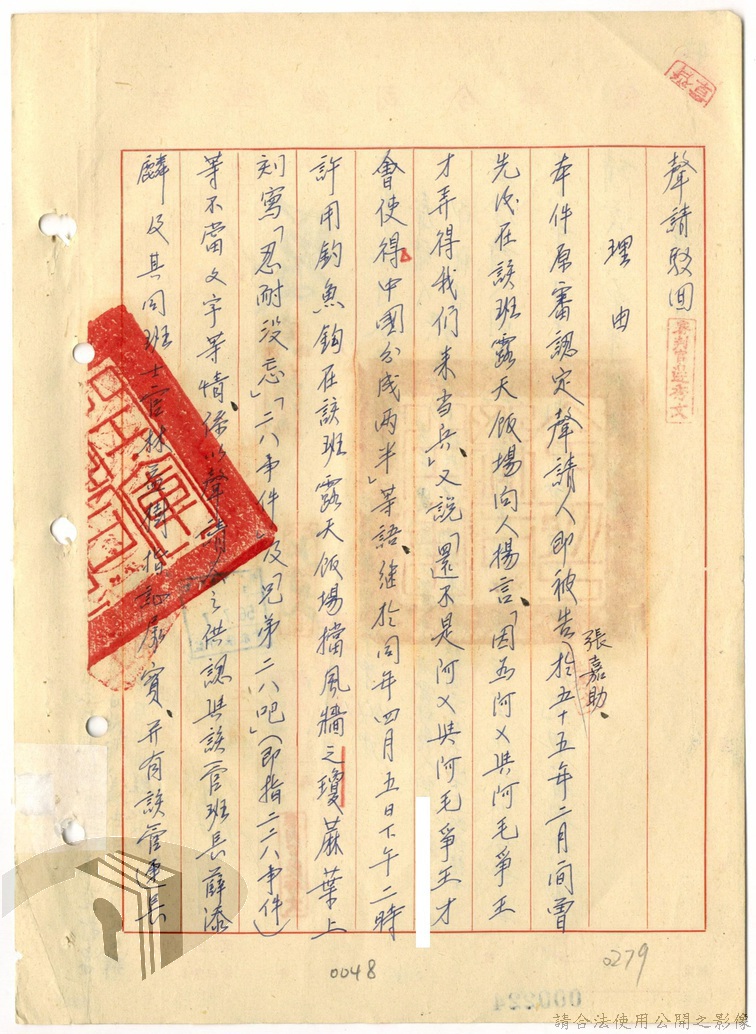 聲請駁回
理由
本件原審認定聲請人即被告張嘉助、於五十五年二月間曾
先後在該班露天飯場向人揚言「因為阿ㄨ與阿毛爭王
才弄得我们来当兵」又說「還不是阿ㄨ與阿毛爭王才
會使得中國分成两半」等語、継於同年四月五日下午二時
許用釣魚鈎在該班露天飯場擋風牆之瓊蔴葉上
刻寫「忍耐没忘」「二八事件」及「兄弟二八吧」（即指二二八事件）
等不當文字等情係以聲請人之供認與該管班長薛添
麟及其同班士官林 指訴 實、并有該管連長
0048
0279
000224
請合法使用公開之影像